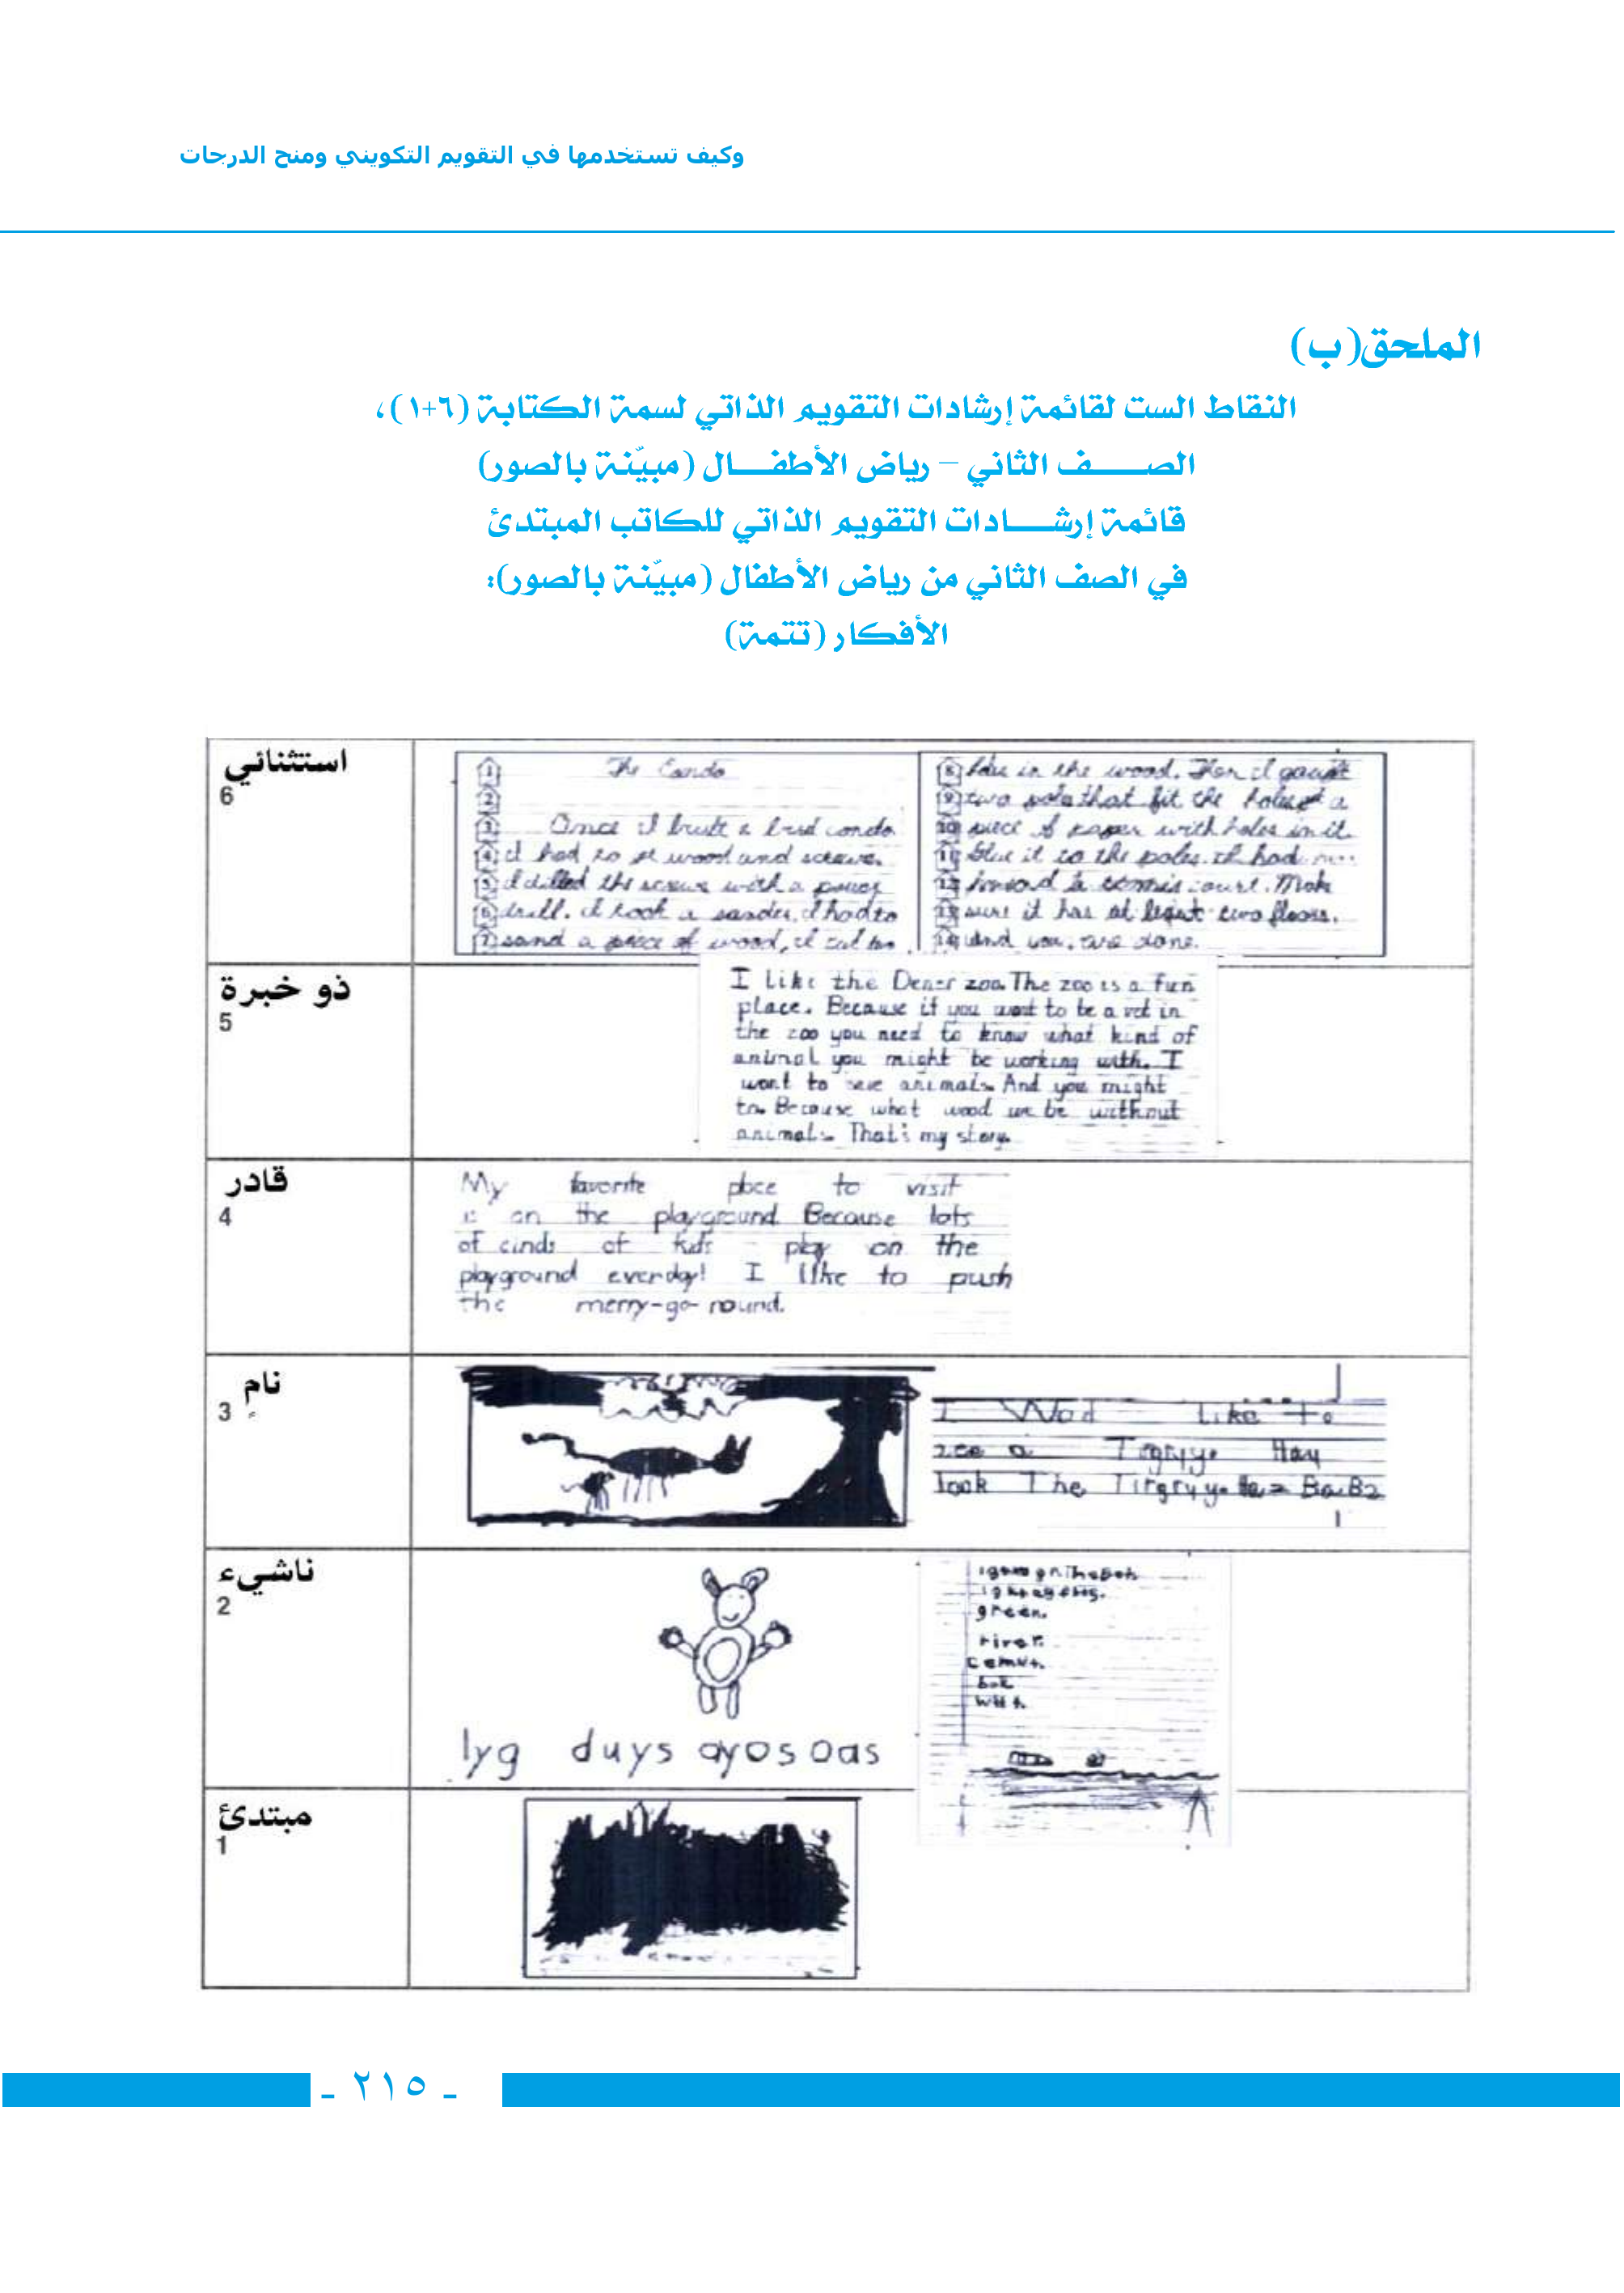 وكيف تستخدمها في التقويم التكويني ومنح الدرجات
الملحق(ب)
النقاط الست لقائمة إرشادات التقويم الذاتي لسمة الكتابة (٦+١)،
الصــــف الثاني – رياض الأطفــال (مبيّنة بالصور)
قائمة إرشــادات التقويم الذاتي للكاتب المبتدئ
في الصف الثاني من رياض الأطفال (مبيّنة بالصور):
الأفكار (تتمة)
استثنائي
6
1 The Condo
2
3 Once I built a bird condo.
4 I had to wood and screws.
5 I drilled the screws with a power
6 drill. I took a sander. I had to
7 sand a piece of wood, I cut two
8 holes in the wood. Then I
9 two that fit the holes a
10 piece of paper with holes in it.
11 Glue it to the poles. I had
12 a court. Make
13 sure it has at least two floors.
14 And you are done.
ذو خبرة
5
I like the Dener zoo. The zoo is a fun
place. Because if you want to be a vet in
the zoo you need to know what kind of
animal you might be working with. I
want to save animals. And you might
to. Because what wood we be without
animals. That's my story.
قادر
4
My favorite place to visit
is on the playground. Because lots
of cinds of kids play on the
playground everday! I like to push
the merry-go-round.
نامٍ
3
I Wod Like to
see a Tigryy. Hay
look The Tirgryy. Has BaBz
ناشيء
2
lyg duys ayos oas
green.
river.
bok
مبتدئ
1
- ٢١٥ -